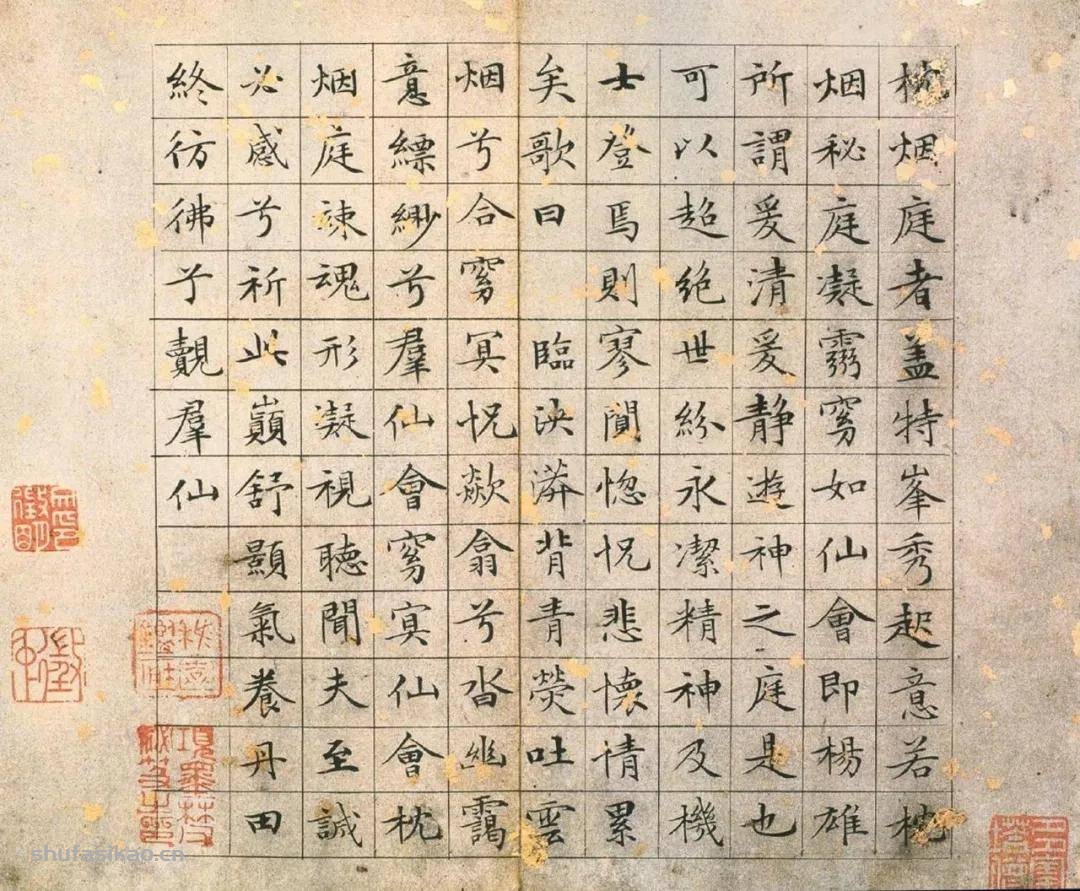 枕烟庭者盖特峯秀起意若枕
烟秘庭凝靈窅如仙會即楊雄
所謂爰清爰静遊神之庭是也
可以超絶世紛永潔精神及機
士登焉則寥閴惚怳悲懷情累
矣歌曰 臨泱漭背青熒吐雲
烟兮合窅冥怳欻翕兮沓幽靄
意縹緲兮羣仙會窅冥仙會枕
烟庭竦魂形凝視聽聞夫至誠
必感兮祈此巔舒顥氣養丹田
終彷彿兮覿羣仙
項墨林父秘笈之印
shufasikao.cn